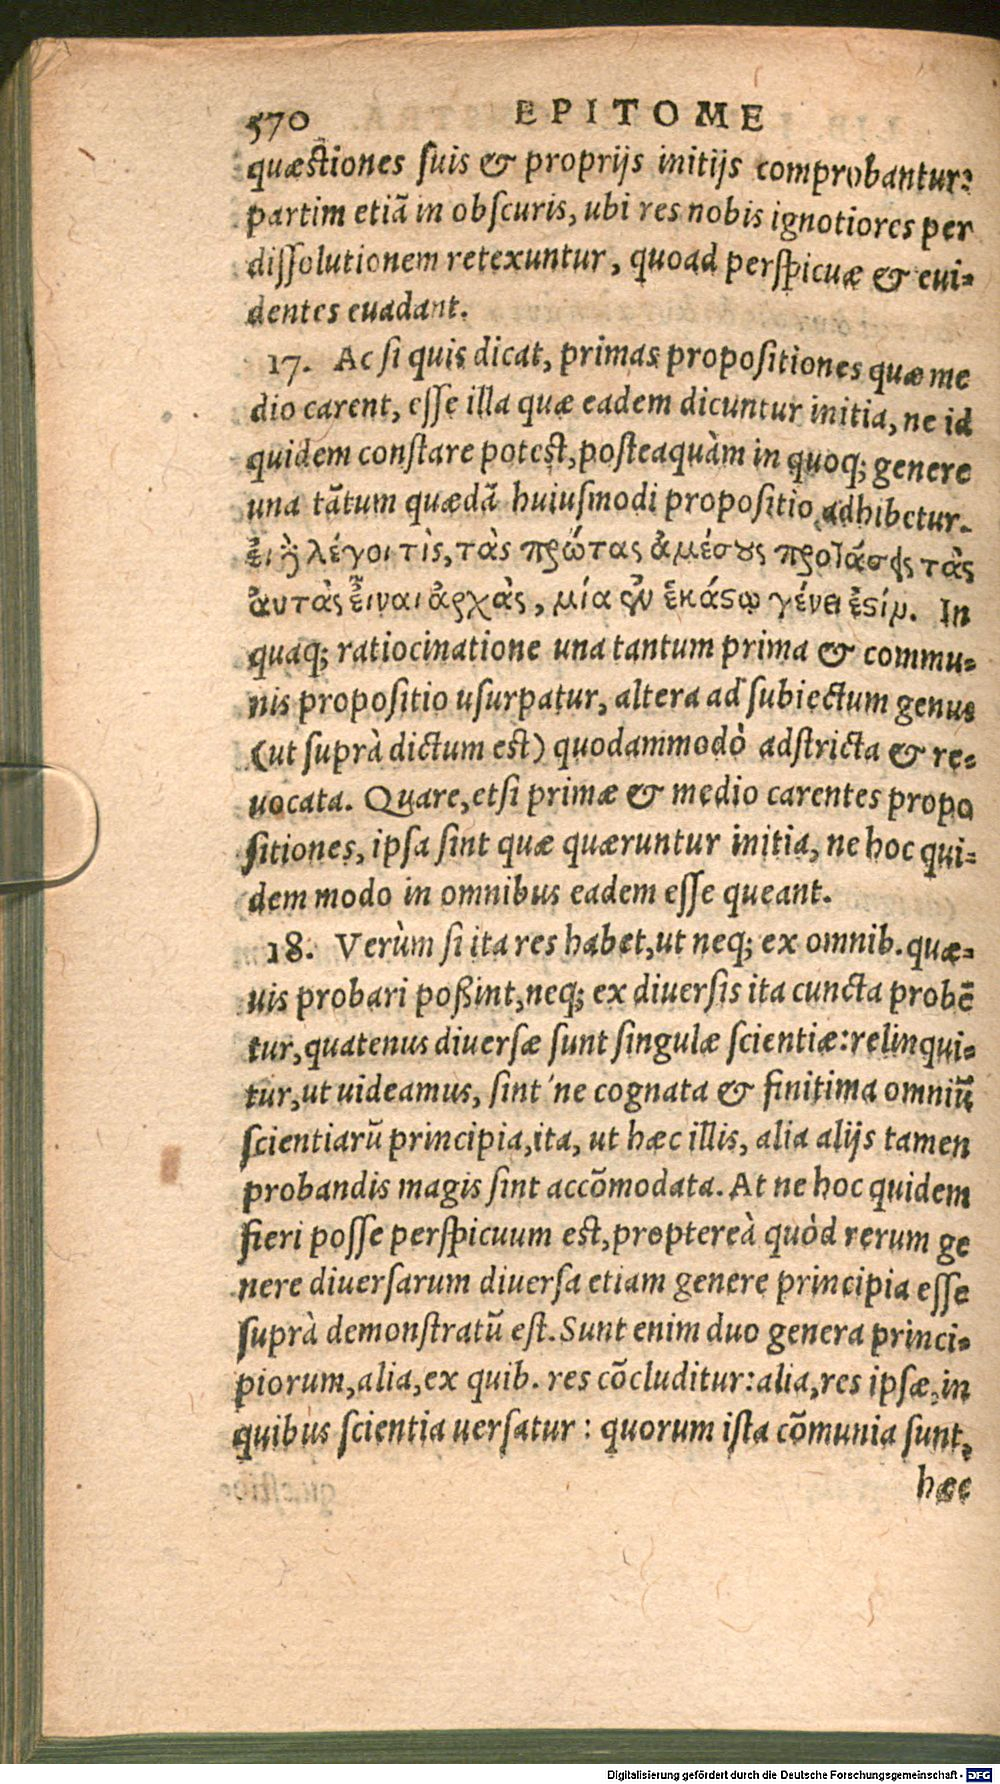 570 EPITOME
quæstiones suis & proprijs initijs comprobantur:
partim etiã in obscuris, ubi res nobis ignotiores per
dissolutionem retexuntur, quoad perspicuæ & eui-
dentes euadant.
17. Ac si quis dicat, primas propositiones quæ me
dio carent, esse illa quæ eadem dicuntur initia, ne id
quidem constare potest, posteaquàm in quoq; genere
una tãtum quædã huiusmodi propositio adhibetur.
εἰ ϗ λέγοι τὶς, τὰς πρώτας ἀμέσους προτάσεις τὰς
ἀυτὰς εἶιναι ἀρχὰς, μία ὧν ἑκάστῳ γένει ἐστίν. In
quaq; ratiocinatione una tantum prima & commu-
nis propositio usurpatur, altera ad subiectum genus
(ut suprà dictum est) quodammodò adstricta & re-
uocata. Quare, etsi primæ & medio carentes propo
sitiones, ipsa sint quæ quæruntur initia, ne hoc qui-
dem modo in omnibus eadem esse queant.
18. Verùm si ita res habet, ut neq; ex omnib. quæ-
uis probari poßint, neq; ex diuersis ita cuncta probẽ
tur, quatenus diuersæ sunt singulæ scientiæ: relinqui-
tur, ut uideamus, sint'ne cognata & finitima omniũ
scientiarũ principia, ita, ut hæc illis, alia alijs tamen
probandis magis sint accõmodata. At ne hoc quidem
fieri posse perspicuum est, proptereà quòd rerum ge
nere diuersarum diuersa etiam genere principia esse
suprà demonstratũ est. Sunt enim duo genera princi-
piorum, alia, ex quib. res cõcluditur: alia, res ipsæ, in
quibus scientia uersatur: quorum ista cõmunia sunt,
hæc
Digitalisierung gefördert durch die Deutsche Forschungsgemeinschaft - DFG